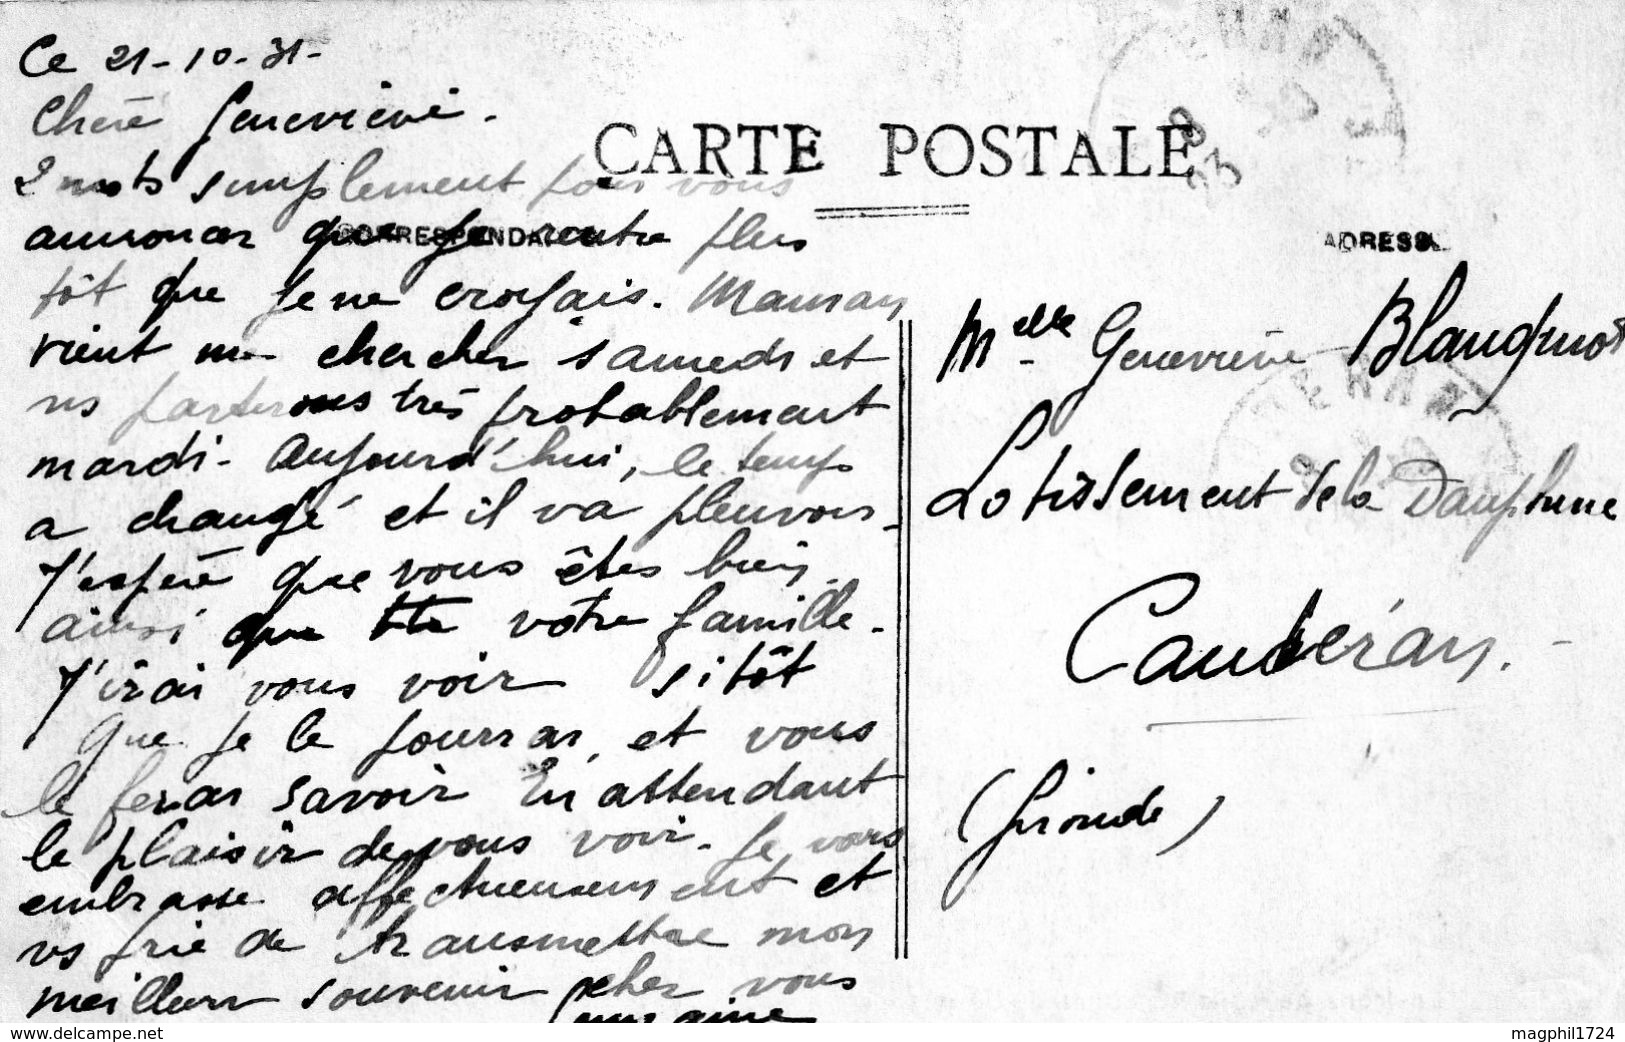 Ce 21-10-31-
Chère Geneviève.
CARTE POSTALE
2 mots simplement pour vous
annoncer que je rentre plus
CORRESPONDANCE
ADRESSE
tôt que je ne croyais. Maman
vient me chercher samedi et
ns partirons très probablement
mardi. Aujourd'hui, le temps
a changé et il va pleuvoir.
J'espère que vous êtes bien
ainsi que votre famille.
J'irai vous voir sitôt
que je le pourrai, et vous
le ferai savoir En attendant
le plaisir de vous voir. Je vous
embrasse affectueusement et
vs prie de transmettre mon
meilleur souvenir chez vous
Melle Geneviève
Lotissement de la Dauphine
Caudéran.
(Gironde)
www.delcampe.net
magphil1724